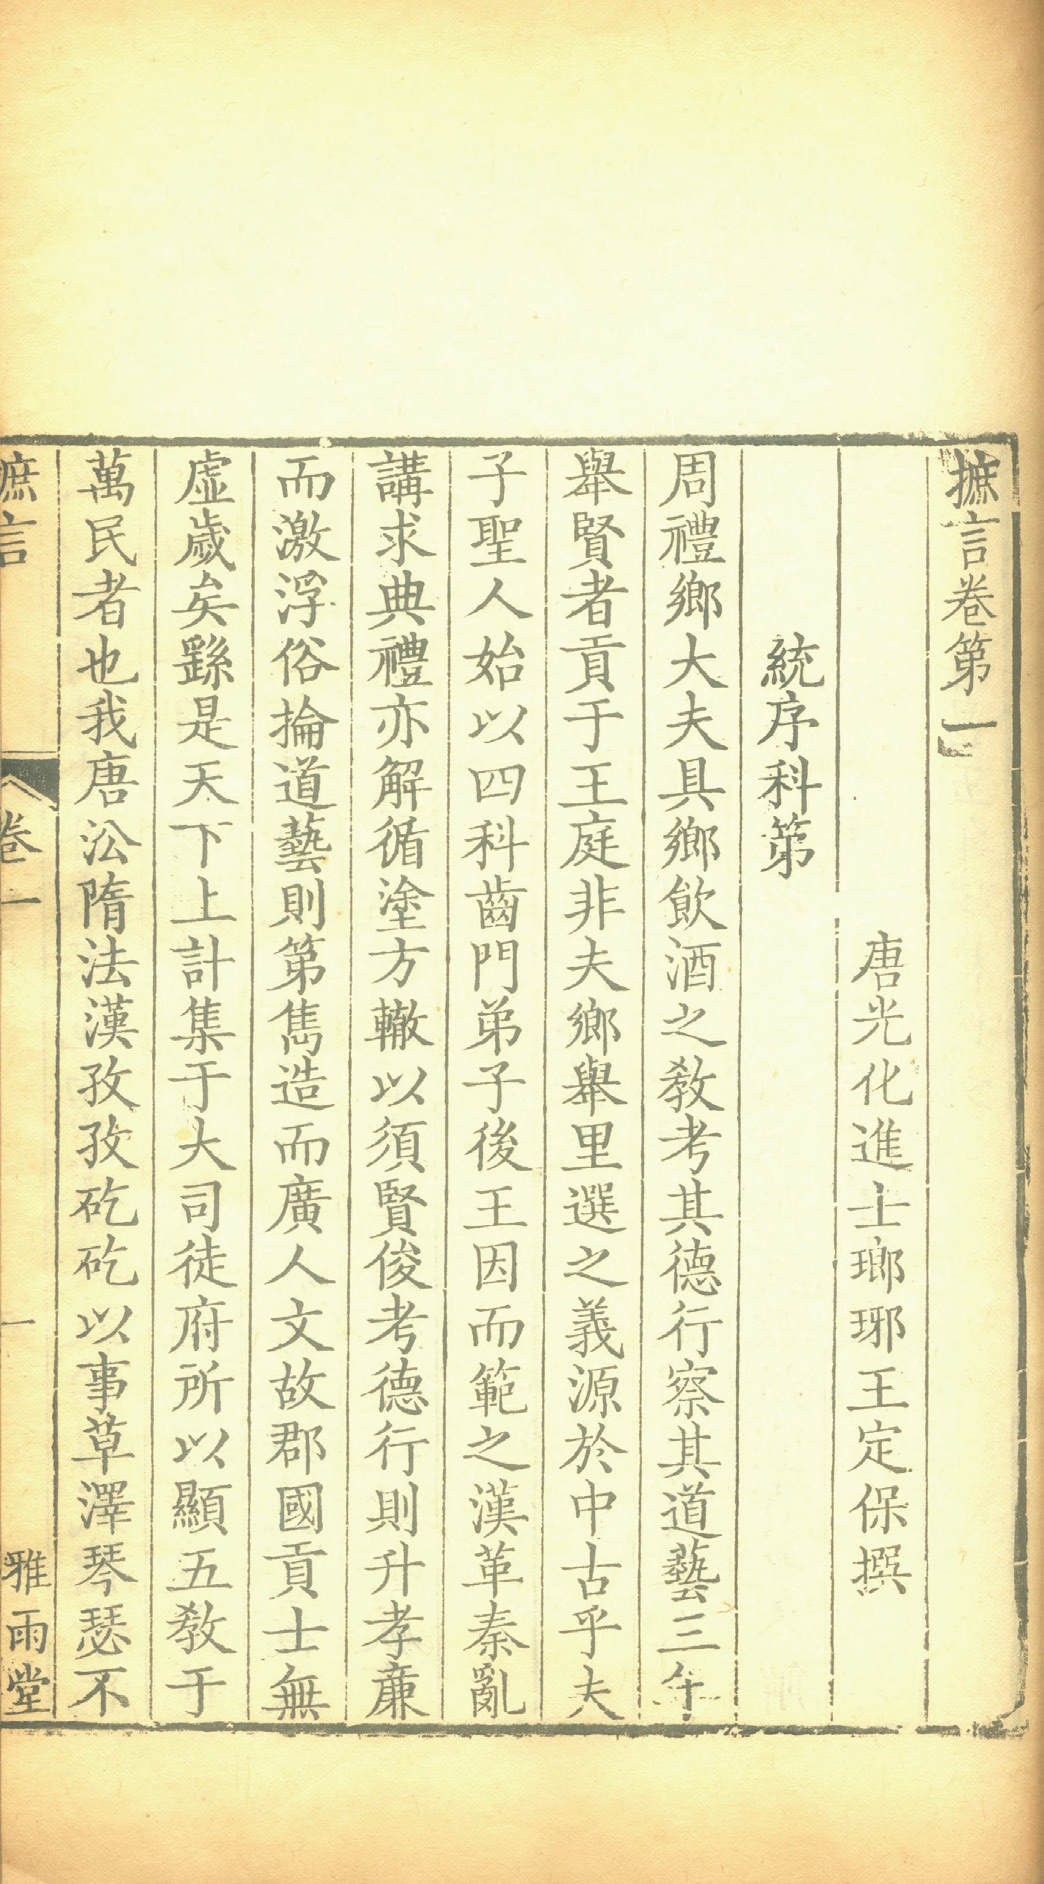 摭言卷第一
唐光化進士瑯琊王定保撰
統序科第
周禮鄉大夫具鄉飲酒之教考其德行察其道藝三年
舉賢者貢于王庭非夫鄉舉里選之義源於中古乎夫
子聖人始以四科齒門弟子後王因而範之漢革秦亂
講求典禮亦解循塗方轍以須賢俊考德行則升孝廉
而激浮俗掄道藝則第雋造而廣人文故郡國貢士無
虛歲矣繇是天下上計集于大司徒府所以顯五教于
萬民者也我唐㳂隋法漢孜孜矻矻以事草澤琴瑟不
摭言 卷一 一 雅雨堂